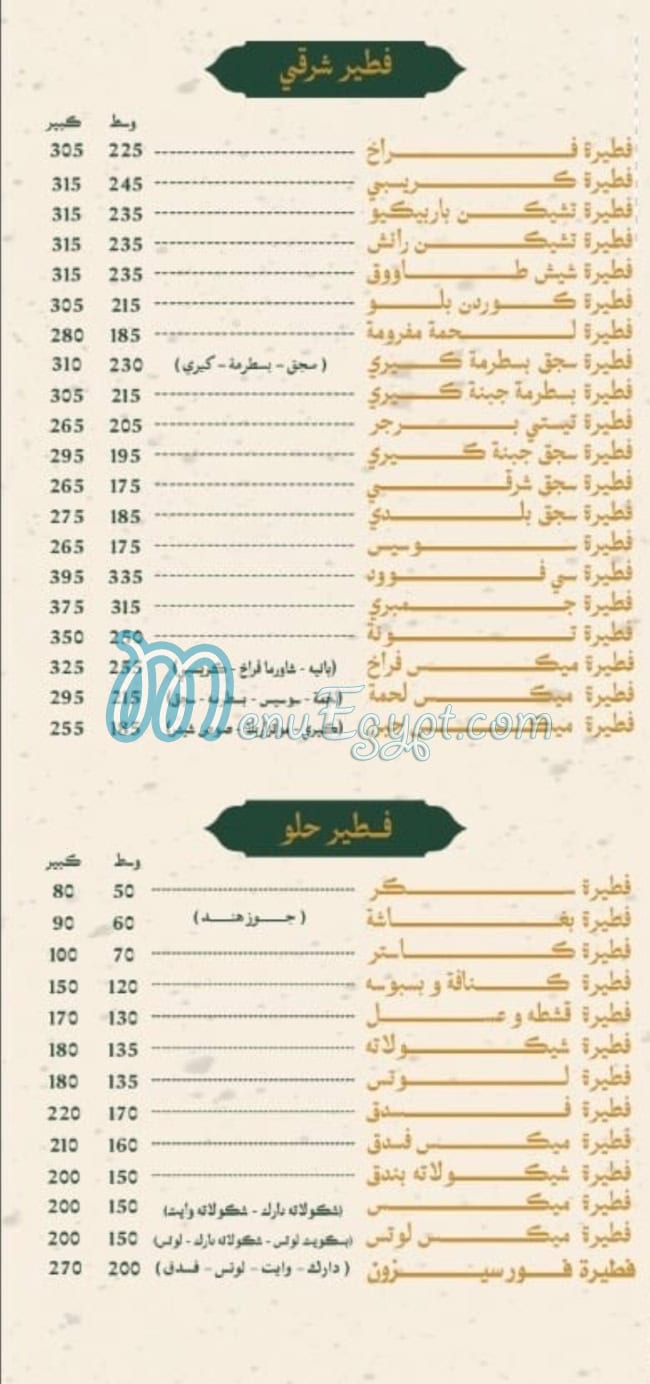 فطير شرقي
وسط كبير
فطيرة فراخ 225 305
فطيرة كريبي 245 315
فطيرة تشيكن باربيكيو 235 315
فطيرة تشيكن رانش 235 315
فطيرة شيش طاووق 235 315
فطيرة كوردن بلو 215 305
فطيرة لحمة مفرومة 185 280
فطيرة سجق بسطرمة كيري (سجق - بسطرمة - كيري) 230 310
فطيرة بسطرمة جبنة كيري 215 305
فطيرة تيستي برجر 205 265
فطيرة سجق جبنة كيري 195 295
فطيرة سجق شرقي 175 265
فطيرة سجق بلدي 185 275
فطيرة سوسيس 175 265
فطيرة سي فوود 335 395
فطيرة جمبري 315 375
فطيرة تونة 350
فطيرة ميكس فراخ (بانيه - شاورما فراخ - كريسبي) 255 325
فطيرة ميكس لحمة (لحمة - سوسيس - بسطرمة - سجق) 215 295
فطيرة ميكس جبن 185 255
MenuEgypt.com
فطير حلو
وسط كبير
فطيرة سكر 50 80
فطيرة بغاشة (جوز هند) 60 90
فطيرة كاستر 70 100
فطيرة كنافة و بسبوسه 120 150
فطيرة قشطه و عسل 130 170
فطيرة شيكولاته 135 180
فطيرة لوتس 135 180
فطيرة فسدق 170 220
فطيرة ميكس فسدق 160 210
فطيرة شيكولاته بندق 150 200
فطيرة ميكس (شكولاته دارك - شكولاته وايت) 150 200
فطيرة ميكس لوتس (بسكويت لوتس - شكولاته دارك - لوتس) 150 200
فطيرة فورسيزون (دارك - وايت - لوتس - فسدق) 200 270